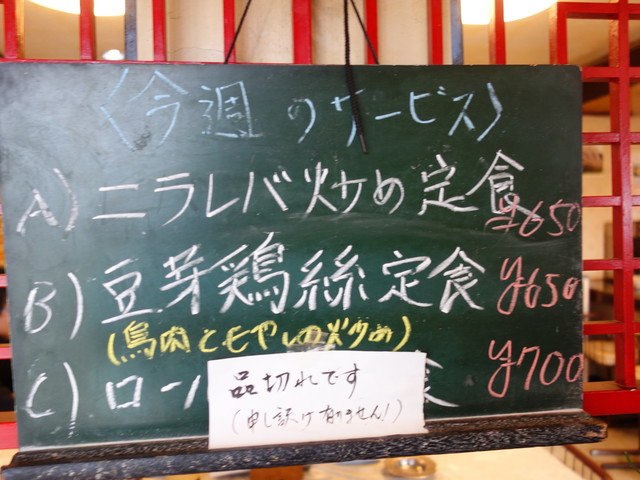 〈今週のサービス〉
A) ニラレバ炒め定食 ¥650
B) 豆芽鶏絲定食 ¥650
(鳥肉ともやしの炒め)
C) ロー 食 ¥700
品切れです
(申し訳け有りません!)